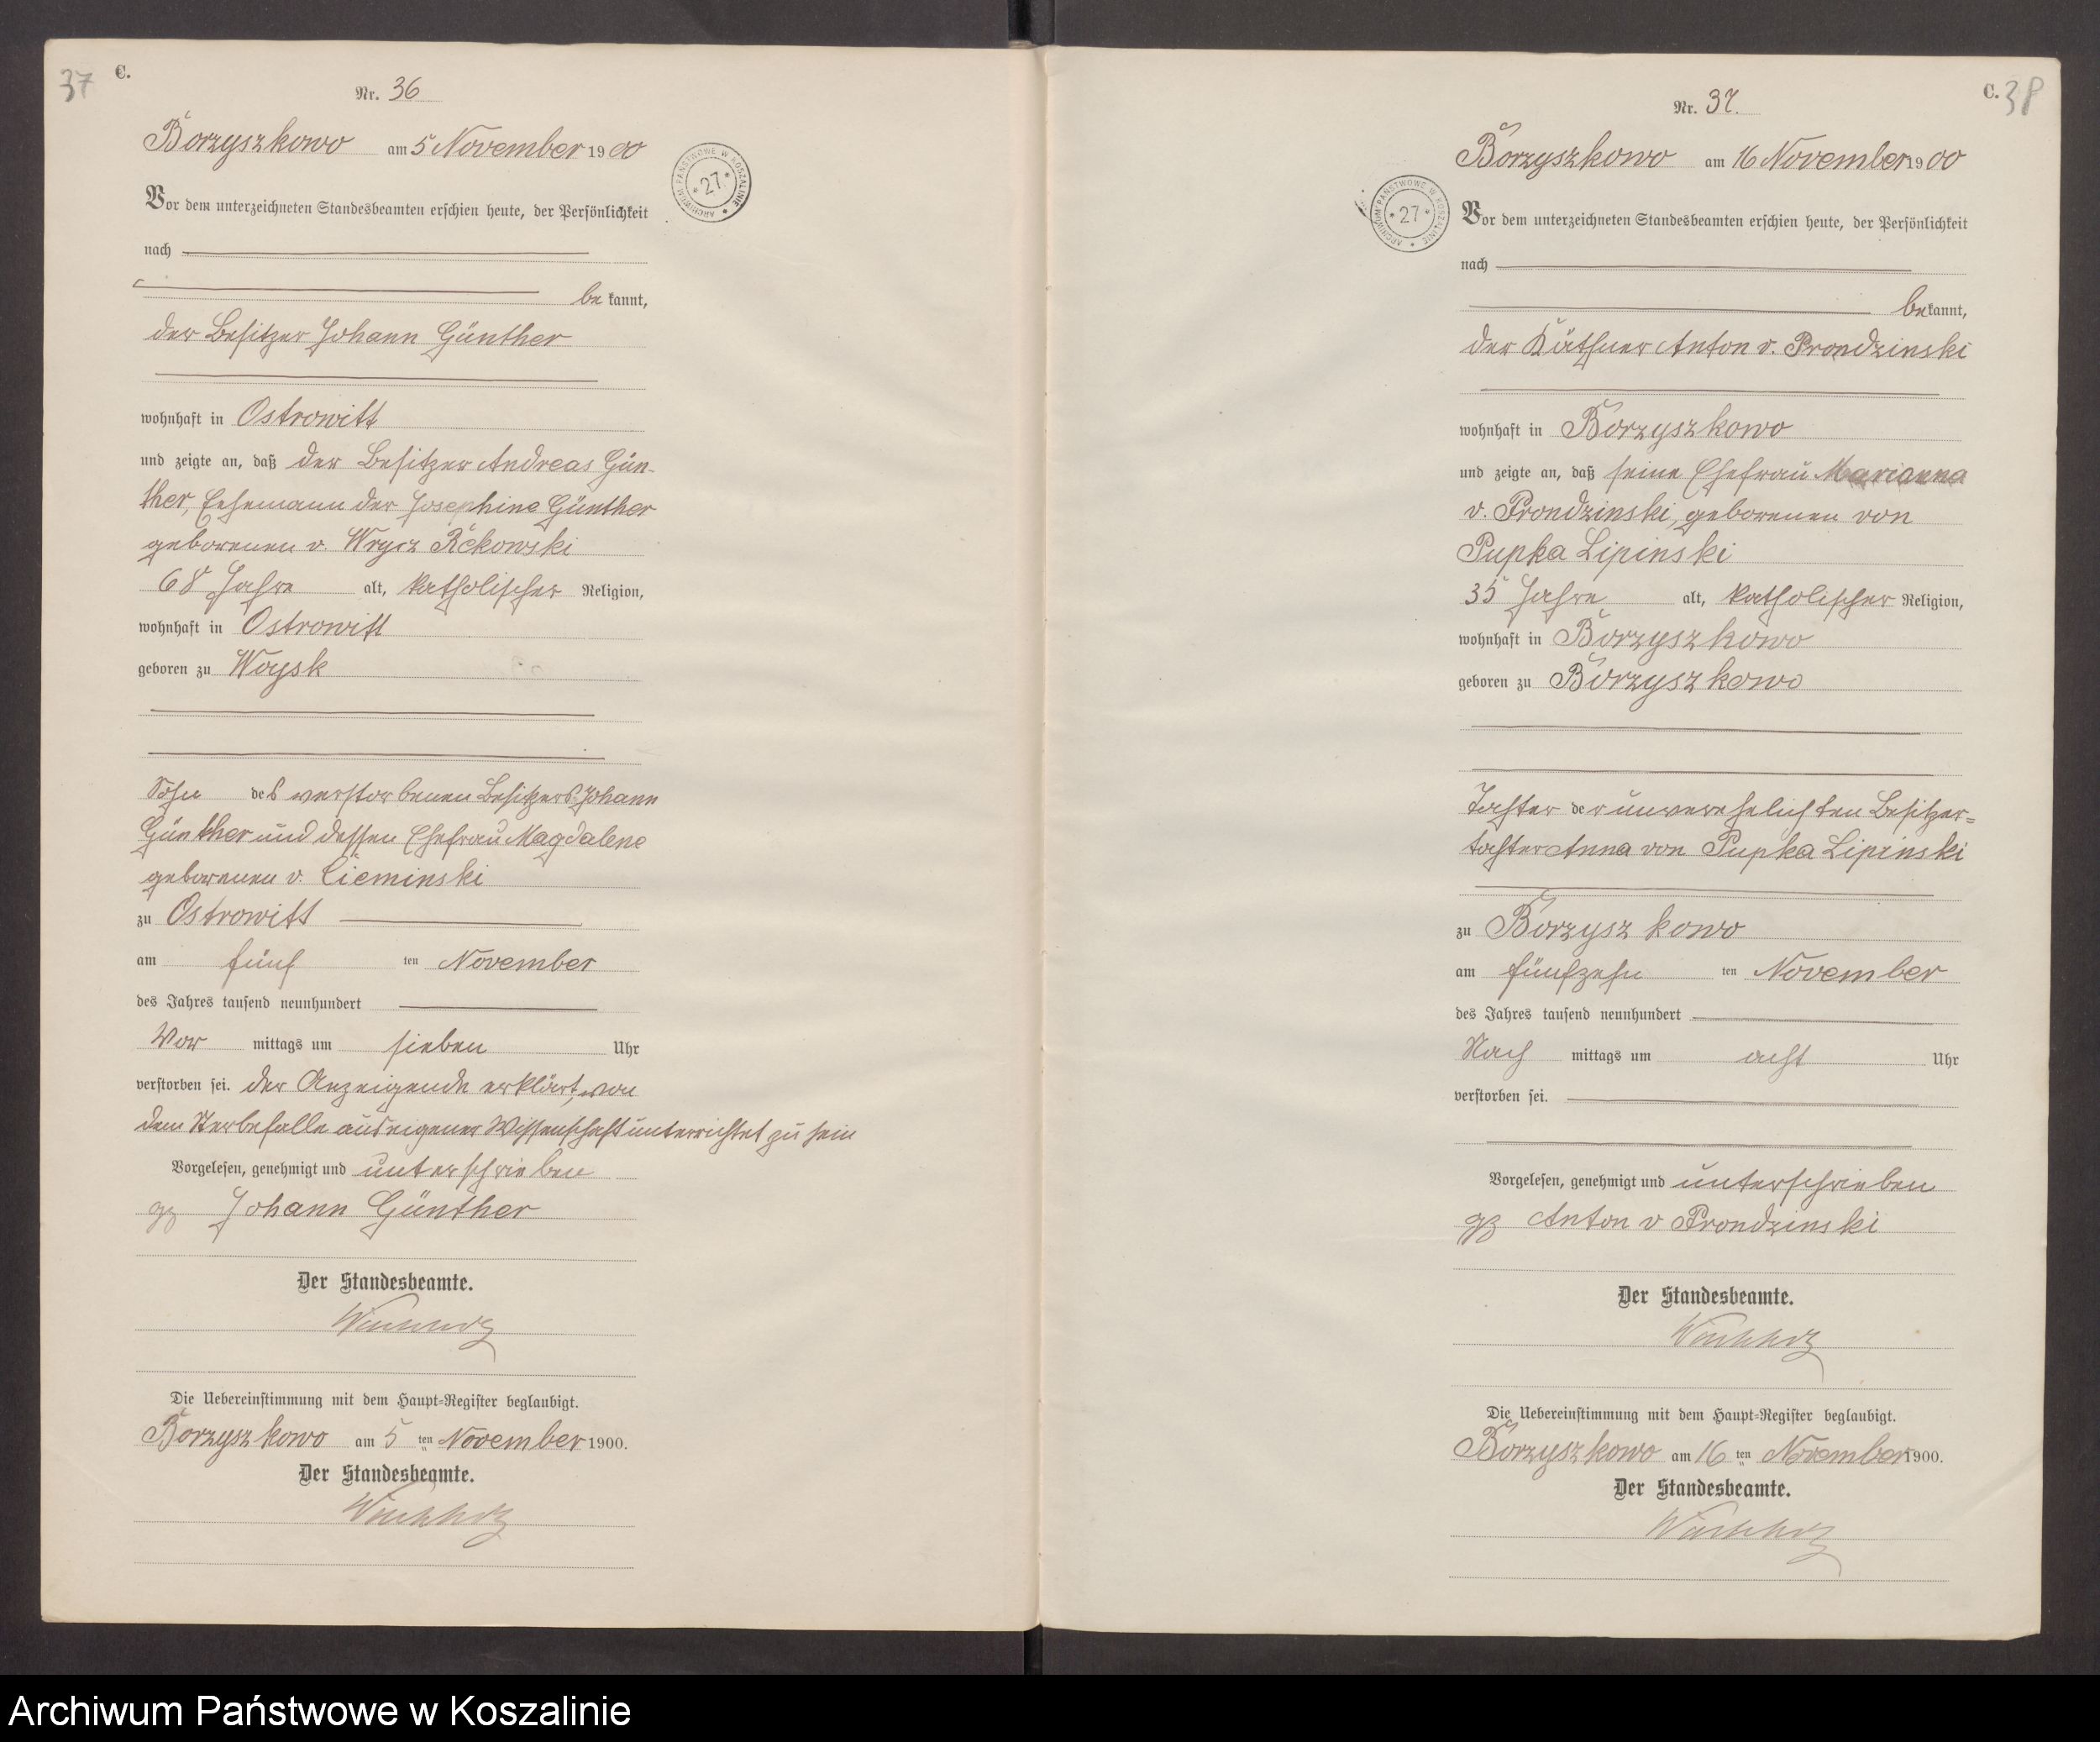 37
C.
Nr. 36
Borzyszkowo am 5 November 1900
ARCHIWUM PAŃSTWOWE W KOSZALINIE * 27 *
Vor dem unterzeichneten Standesbeamten erschien heute, der Persönlichkeit
nach
be kannt,
der Besitzer Johann Günther
wohnhaft in Ostrowitt
und zeigte an, daß der Besitzer Andreas Gün-
ther, Ehemann der Josephine Günther
geborenen v. Wrycz Rekowski
68 Jahre alt, katholischer Religion,
wohnhaft in Ostrowitt
geboren zu Woysk
Sohn des verstorbenen Besitzers Johann
Günther und dessen Ehefrau Magdalene
geborenen v. Cieminski
zu Ostrowitt
am fünf ten November
des Jahres tausend neunhundert
Vor mittags um sieben Uhr
verstorben sei. Der Anzeigende erklärt, von
dem Sterbefalle aus eigener Wissenschaft unterrichtet zu sein
Vorgelesen, genehmigt und unterschrieben
gz Johann Günther
Der Standesbeamte.
Die Uebereinstimmung mit dem Haupt-Register beglaubigt.
Borzyszkowo am 5 ten November 1900.
Der Standesbeamte.
C. 38
Nr. 37.
Borzyszkowo am 16 November 1900
ARCHIWUM PAŃSTWOWE W KOSZALINIE * 27 *
Vor dem unterzeichneten Standesbeamten erschien heute, der Persönlichkeit
nach
bekannt,
der Käthner Anton v. Prondzinski
wohnhaft in Borzyszkowo
und zeigte an, daß seine Ehefrau Marianna
v. Prondzinski, geborenen von
Pupka Lipinski
35 Jahre alt, katholischer Religion,
wohnhaft in Borzyszkowo
geboren zu Borzyszkowo
Tochter der unverehelichten Besitzer=
tochter Anna von Pupka Lipinski
zu Borzyszkowo
am fünfzehn ten November
des Jahres tausend neunhundert
Nach mittags um acht Uhr
verstorben sei.
Vorgelesen, genehmigt und unterschrieben
gz Anton v Prondzinski
Der Standesbeamte.
Die Uebereinstimmung mit dem Haupt-Register beglaubigt.
Borzyszkowo am 16 ten November 1900.
Der Standesbeamte.
Archiwum Państwowe w Koszalinie